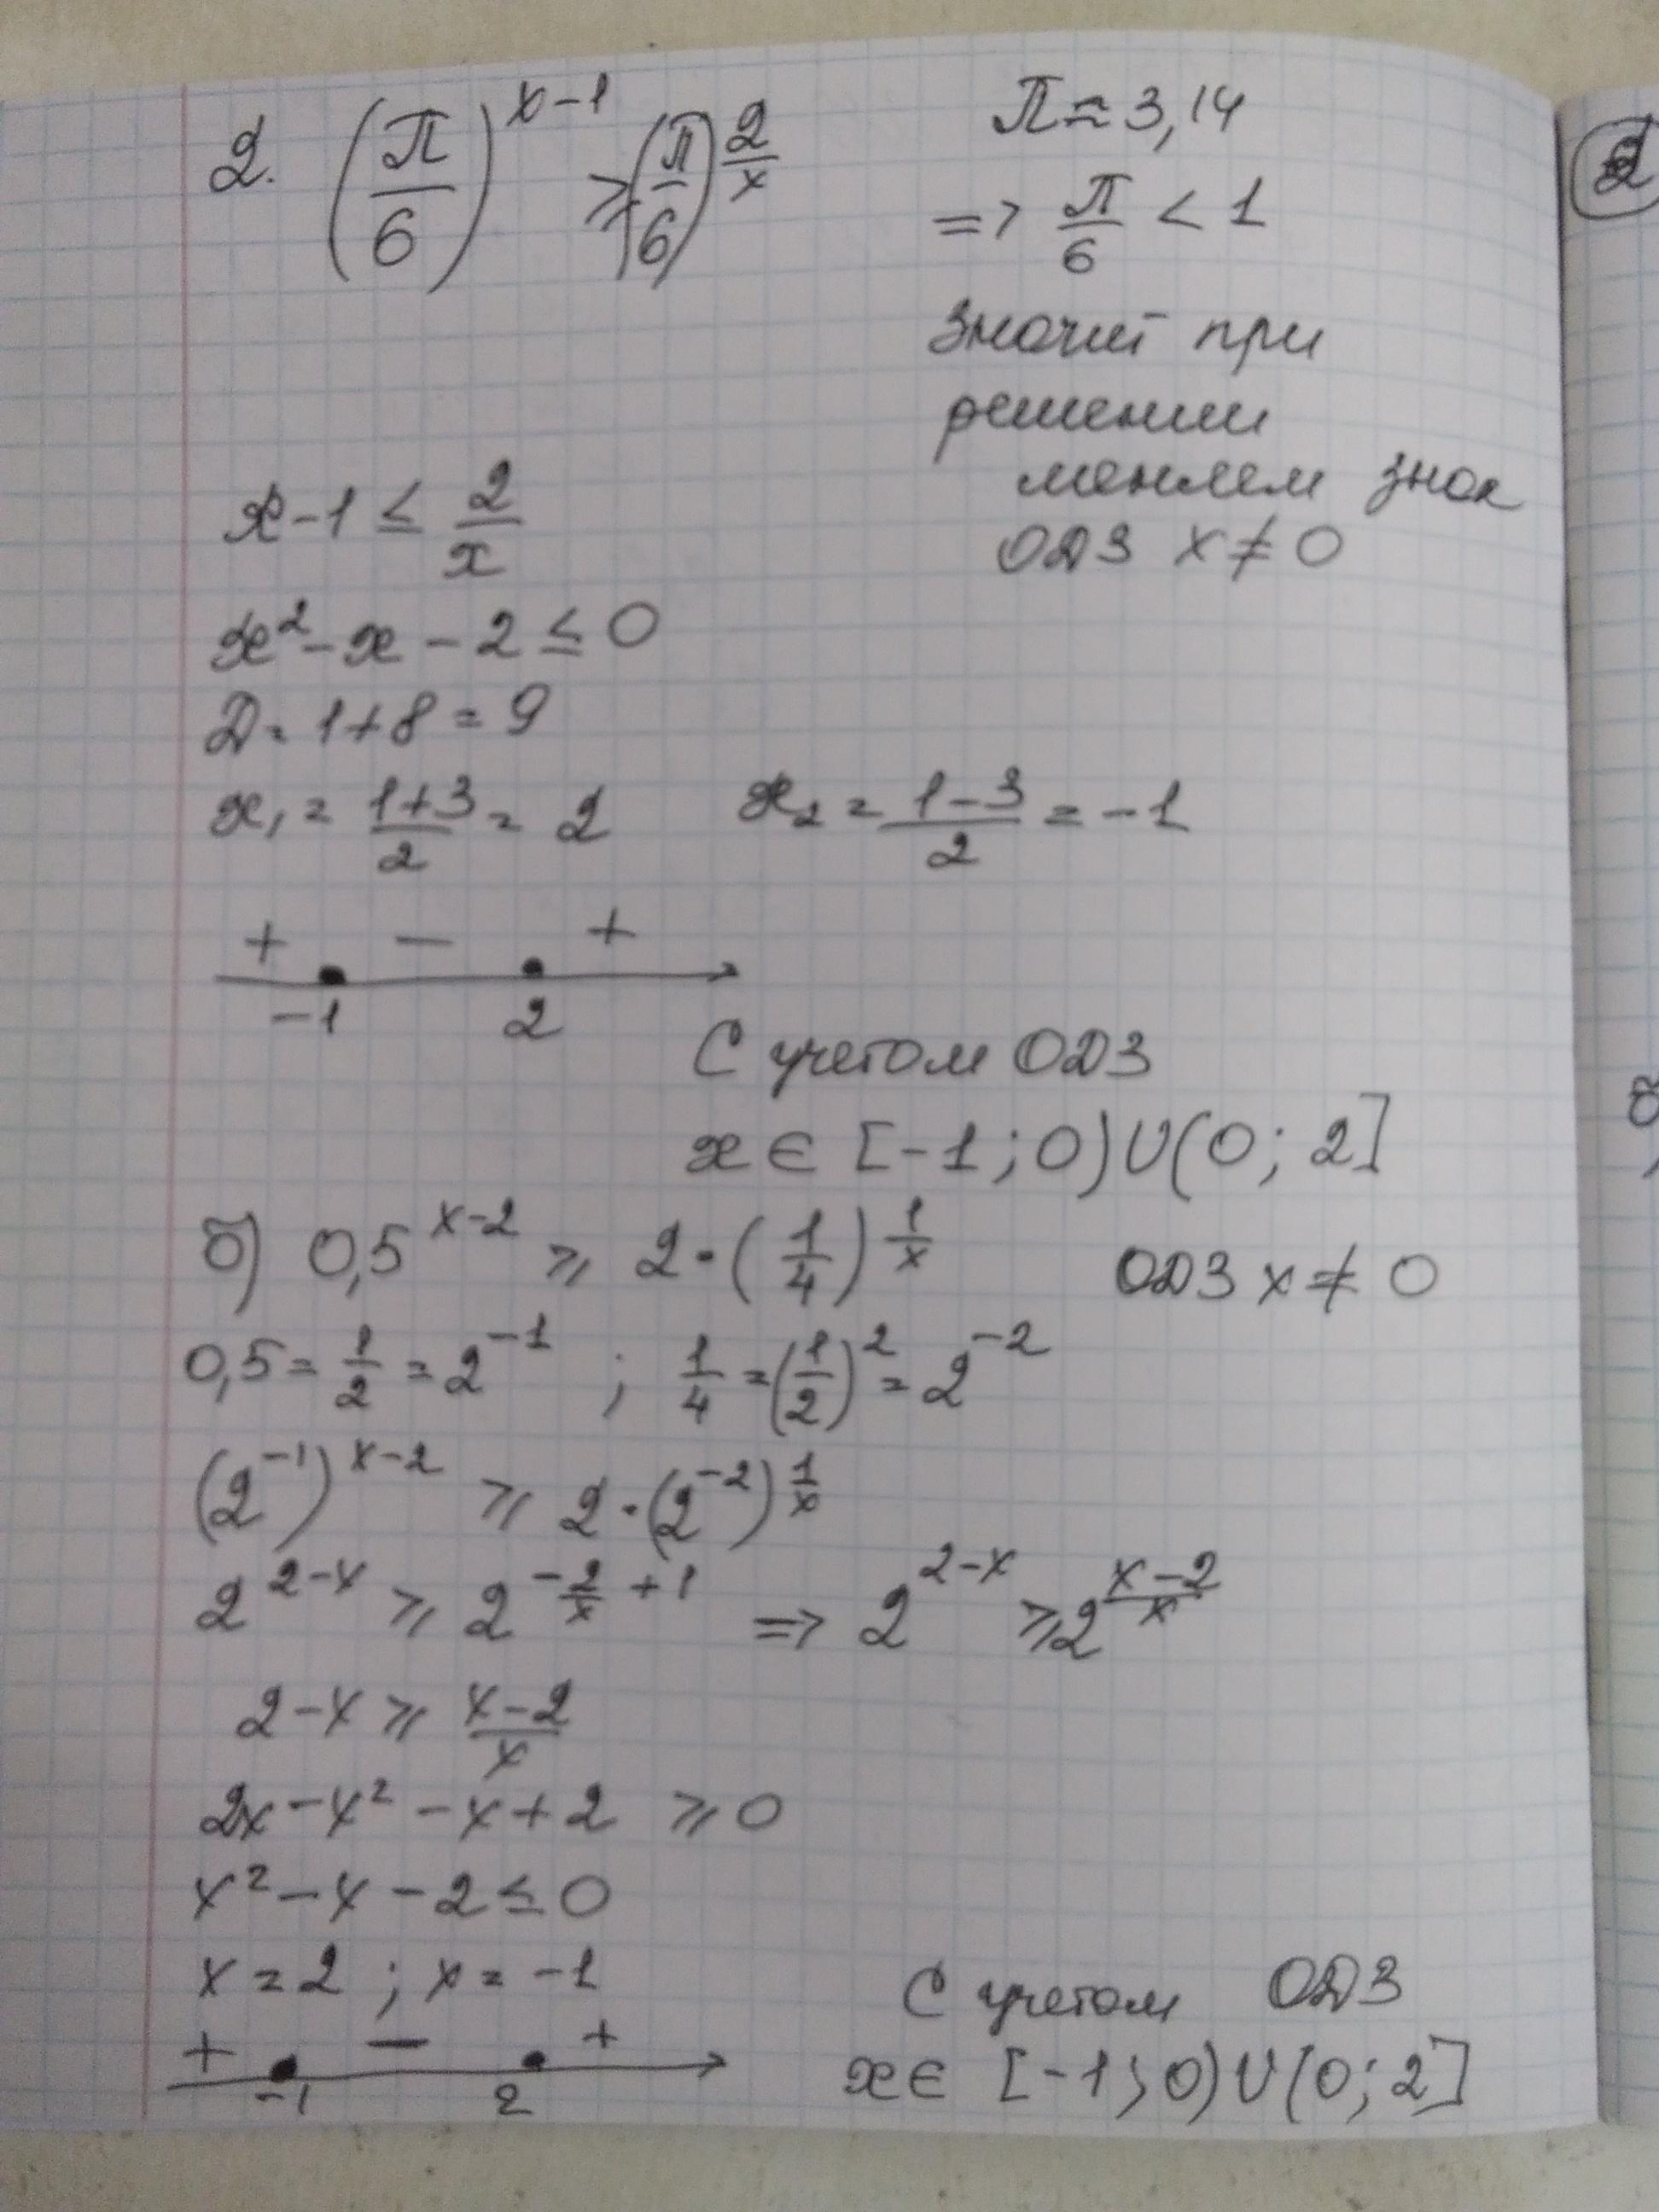 2. (π/6)^(x-1) ≥ (π/6)^(2/x)
π ≈ 3,14
=> π/6 < 1
Значит при
решении
меняем знак
ОДЗ x ≠ 0
x - 1 ≤ 2/x
x² - x - 2 ≤ 0
D = 1 + 8 = 9
x₁ = (1+3)/2 = 2 x₂ = (1-3)/2 = -1
+ - +
-1 2
С учетом ОДЗ
x ∈ [-1; 0) U (0; 2]
б) 0,5^(x-2) ≥ 2 · (1/4)^(1/x) ОДЗ x ≠ 0
0,5 = 1/2 = 2^(-1) ; 1/4 = (1/2)² = 2^(-2)
(2^(-1))^(x-2) ≥ 2 · (2^(-2))^(1/x)
2^(2-x) ≥ 2^(-2/x + 1) => 2^(2-x) ≥ 2^((x-2)/x)
2 - x ≥ (x-2)/x
2x - x² - x + 2 ≥ 0
x² - x - 2 ≤ 0
x = 2 ; x = -1
+ - +
-1 2
С учетом ОДЗ
x ∈ [-1; 0) U (0; 2]
2
б)